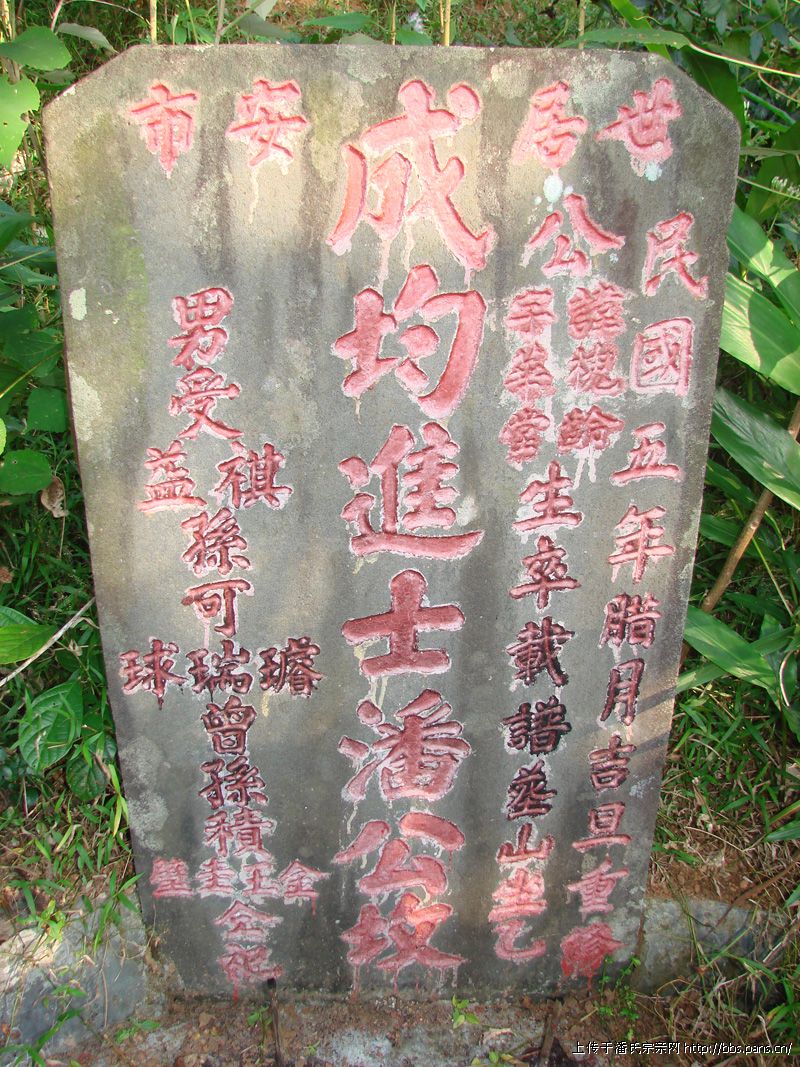 世居安市
民國五年腊月吉旦重修
公諱槐齡字華堂生卒載譜葬山坐乙
成均進士潘公坟
男受祺益孫可璿瑞球曾孫積金玉圭璧仝祀
上传于潘氏宗亲网 http://bbs.pans.cn/